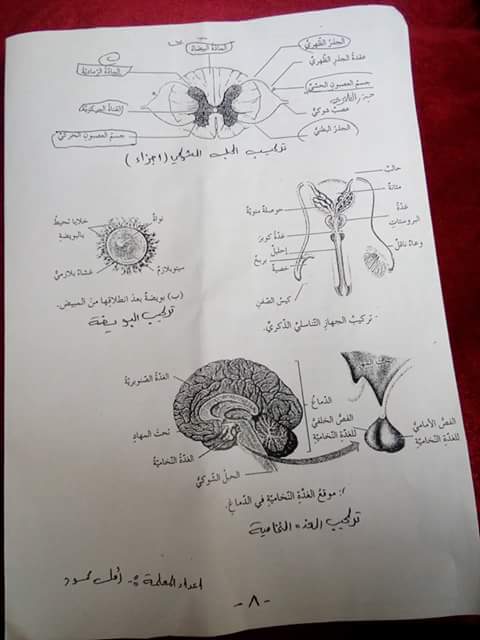 المادة البيضاء
الجذر الظهري
عقدة الجذر الظهري
المادة الرمادية
جسم العصبون الحسي
عصب شوكي
القناة المركزية
الجذر البطني
جسم العصبون الحركي
تركيب الحبل الشوكي (اجزاء)
حالب
مثانة
غدة
البروستات
وعاء ناقل
حوصلة منوية
غدة كوبر
إحليل
بربخ
خصية
كيس الصفن
تركيب الجهاز التناسلي الذكري.
نواة
خلايا تحيط
بالبويضة
غشاء بلازمي
سيتوبلازم
(ب) بويضة بعد انطلاقها من المبيض.
تركيب البويضة
الغدة الصنوبرية
الدماغ
الفص الخلفي
للغدة النخامية
الفص الأمامي
للغدة النخامية
تحت المهاد
الغدة النخامية
الحبل الشوكي
موقع الغدة النخامية في الدماغ.
تركيب الغدة النخامية
اعداد المعلمة :- أمل محمود
- ٨ -